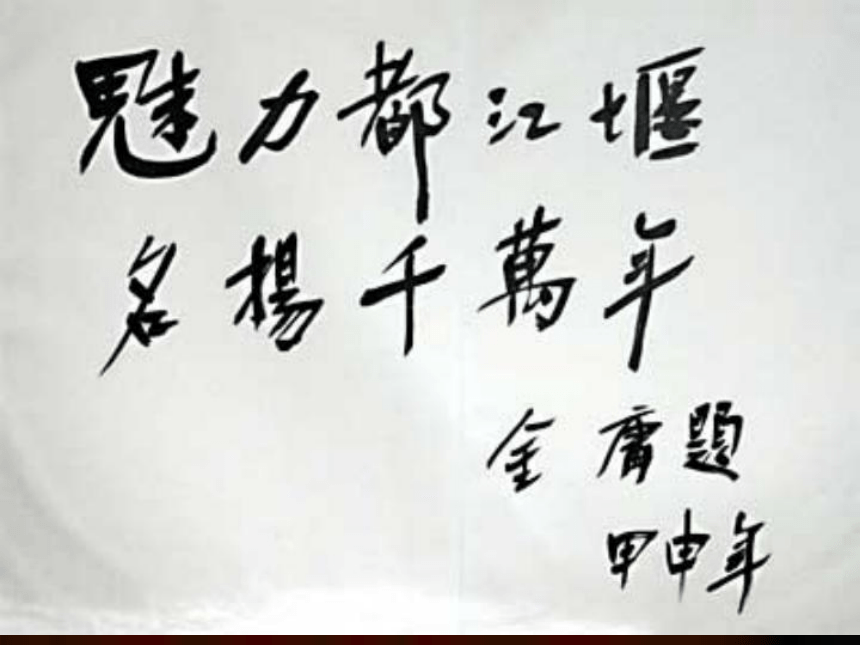 魅力都江堰
名揚千萬年
金庸題
甲申年